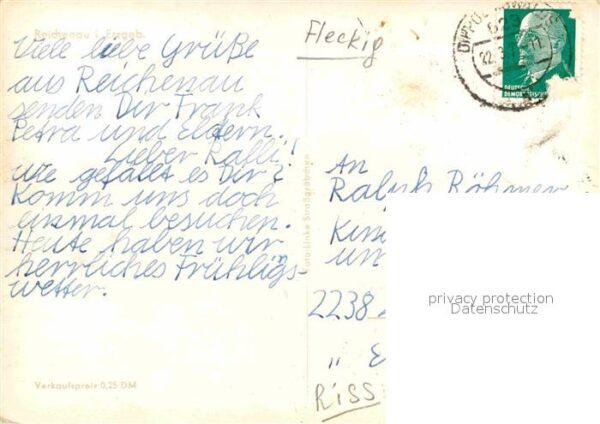 Reichenau i. Erzgeb.
Viele liebe Grüße
aus Reichenau
senden Dir Frank
Petra und Eldern.
Lieber Ralli!
Wie gefällt es Dir?
Komm uns doch
einmal besuchen.
Heute haben wir
herrliches Frühligs-
wetter.
Verkaufspreis 0,25 DM
Fleckig
22.3
DEUTSCHE
DEMOKRATISCHE
An
Ralph Röhmer
Kin
un
2238
" E
Riss
privacy protection
Datenschutz